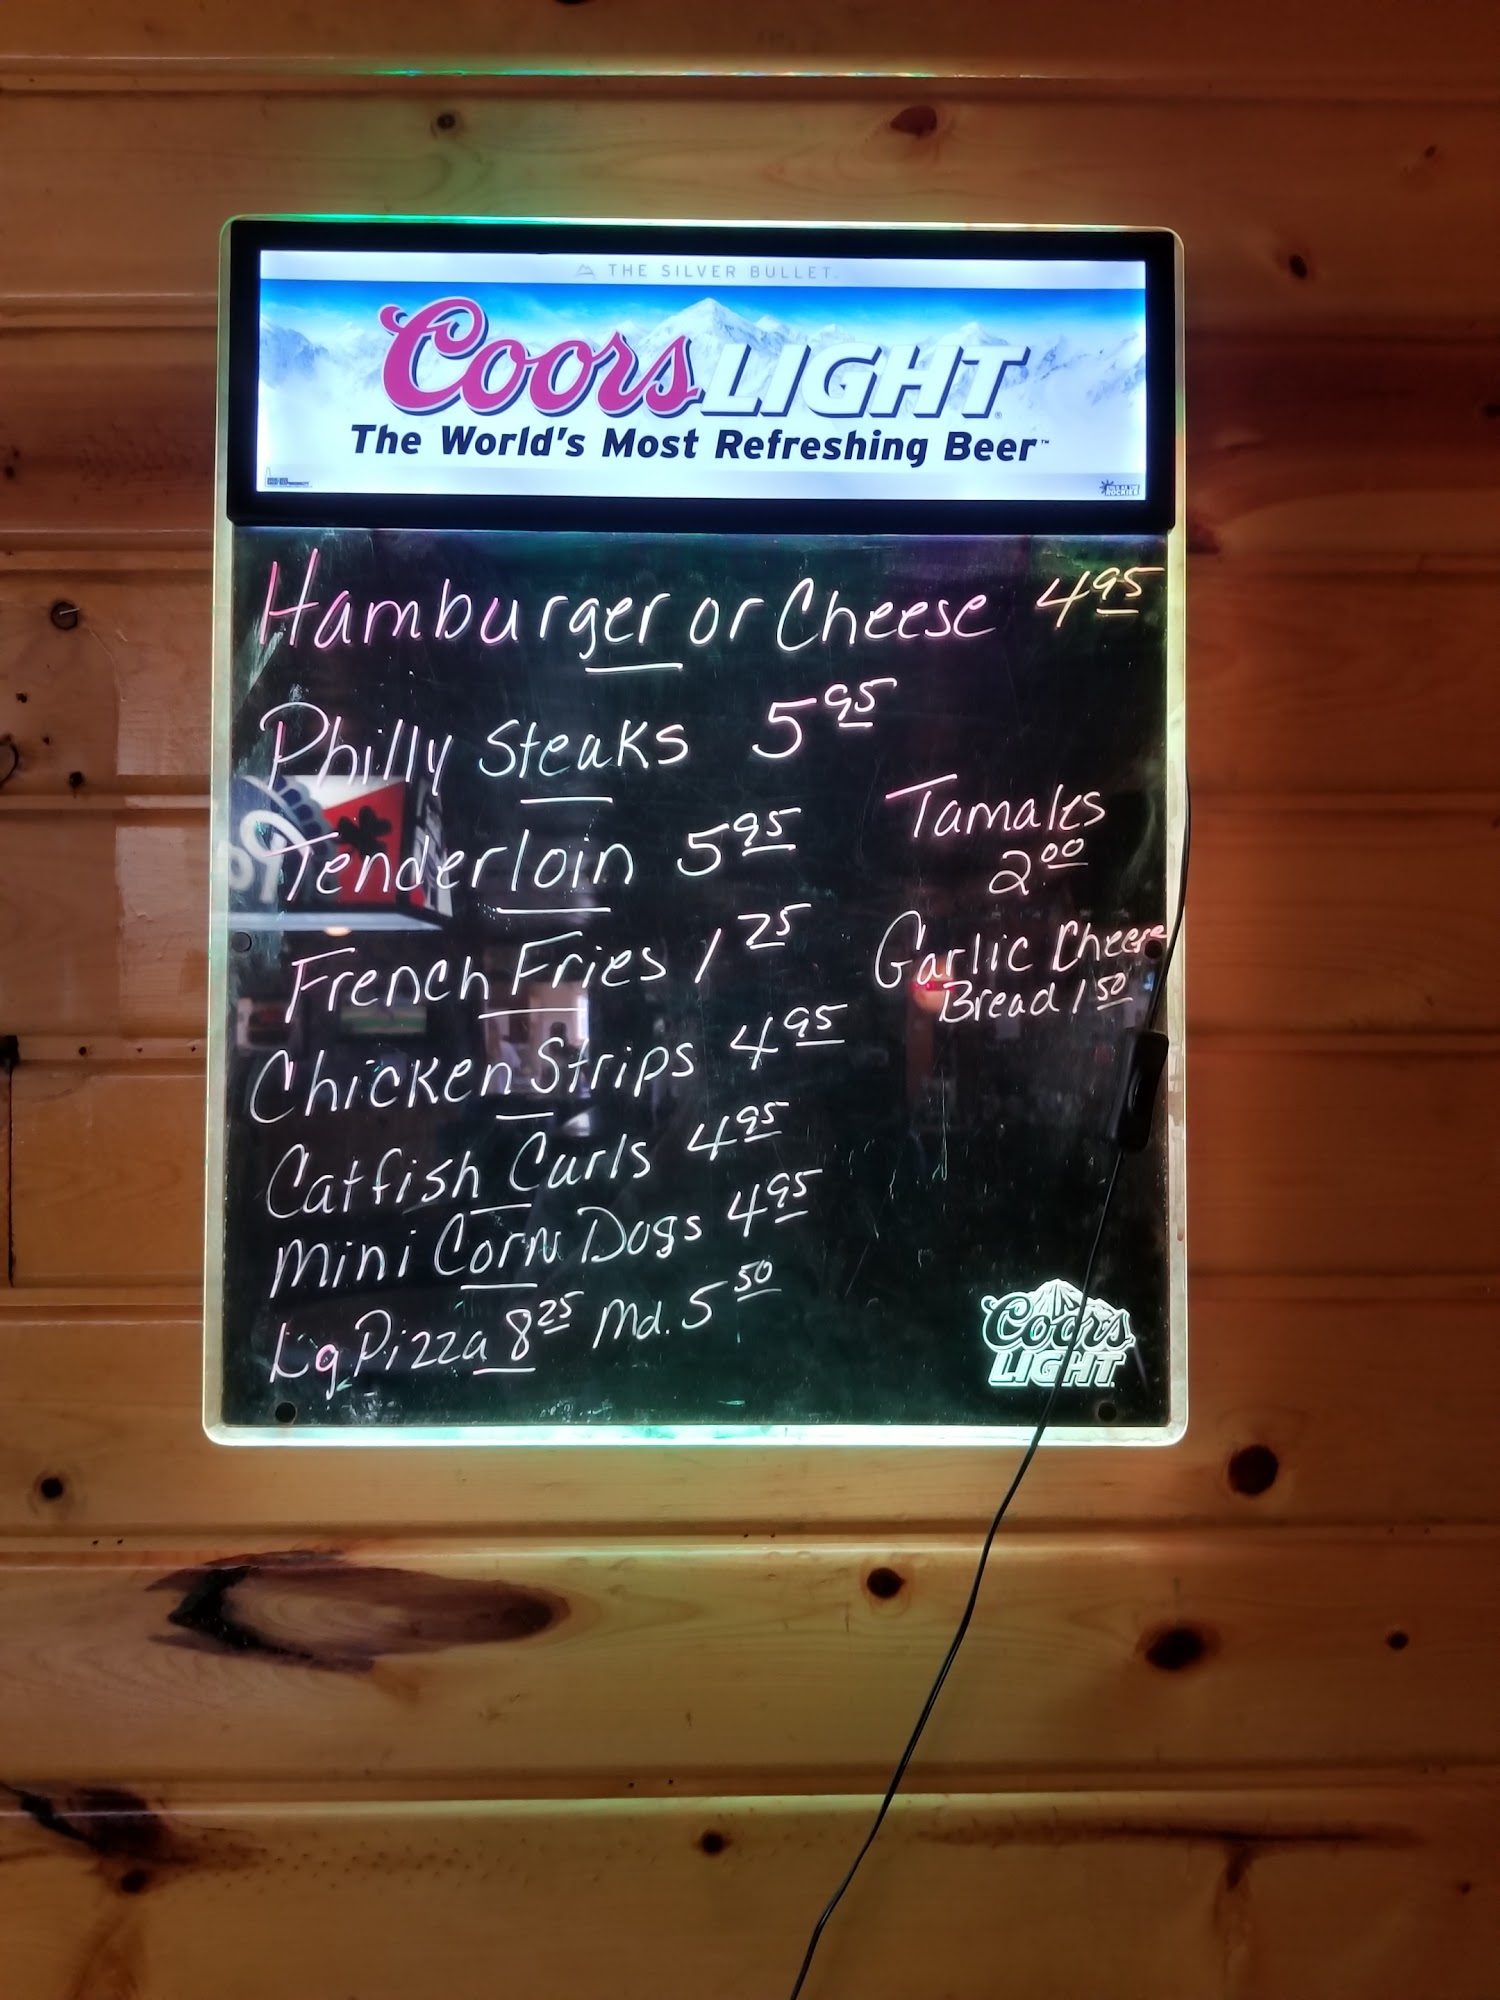 THE SILVER BULLET.
Coors LIGHT
The World's Most Refreshing Beer™
Hamburger or Cheese 4 95
Philly Steaks 5 95
Tenderloin 5 95
French Fries 1 25
Chicken Strips 4 95
Catfish Curls 4 95
Mini Corn Dogs 4 95
Lg Pizza 8 25 Md. 5 50
Tamales
2 00
Garlic Cheese
Bread 1 50
Coors
LIGHT